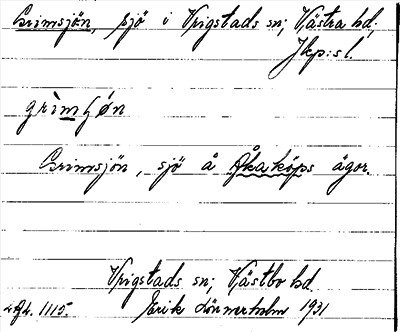 Grimsjön, sjö i Vrigstads sn; Västra hd;
Jkp:s l.
grìmʃøn
Grimsjön, sjö å Åkaköps ägor.
Vrigstads sn; Västbo hd.
Erik Lönnerholm 1931